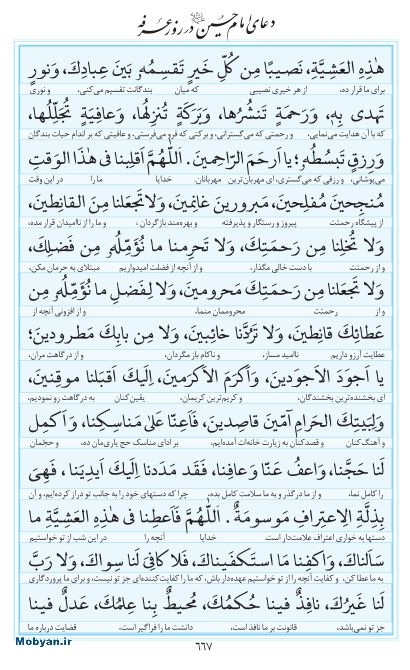 دعای امام حسین در روز عرفه
هٰذِهِ العَشِيَّةِ، نَصيبًا مِن كُلِّ خَيرٍ تَقسِمُهُ بَينَ عِبادِكَ، وَنورٍ
برای ما قرار ده، از هر خیری نصیبی که میان بندگانت تقسیم می‌کنی، و نوری
تَهدی بِهِ، وَرَحمَةٍ تَنشُرُها، وَبَرَكَةٍ تُنزِلُها، وَعافِيَةٍ تُجَلِّلُها،
که با آن هدایت می‌نمایی، و رحمتی که می‌گسترانی، و برکتی که فرو می‌فرستی، و عافیتی که بر اندام حیات بندگان
وَرِزقٍ تَبسُطُهُ؛ يا اَرحَمَ الرّاحِمينَ. اَللّٰهُمَّ اَقلِبنا فی هٰذَا الوَقتِ
می‌پوشانی، و رزقی که می‌گستری، ای مهربان‌ترین مهربانان. خدایا ما را در این وقت
مُنجِحينَ مُفلِحينَ، مَبرورينَ غانِمينَ، وَلا تَجعَلنا مِنَ القانِطينَ،
از پیشگاه رحمتت پیروز و رستگار و پذیرفته و بهره‌مند بازگردان، و ما را از ناامیدان قرار مده،
وَلا تُخلِنا مِن رَحمَتِكَ، وَلا تَحرِمنا ما نُؤَمِّلُهُ مِن فَضلِكَ،
و از رحمتت با دست خالی مگذار، و از آنچه از فضلت امیدواریم مبتلای به حرمان مکن،
وَلا تَجعَلنا مِن رَحمَتِكَ مَحرومينَ، وَلا لِفَضلِ ما نُؤَمِّلُهُ مِن
و از رحمتت محروممان منما، و از افزونی آنچه از
عَطائِكَ قانِطينَ، وَلا تَرُدَّنا خائِبينَ، وَلا مِن بابِكَ مَطرودينَ؛
عطایت آرزو داریم ناامید مساز، و ناکام بازمگردان، و از درگاهت مران،
يا اَجوَدَ الاَجوَدينَ، وَاَكرَمَ الاَكرَمينَ، اِلَيكَ اَقبَلنا موقِنينَ،
ای بخشنده‌ترین بخشندگان، و کریم‌ترین کریمان، یقین کنان به درگاهت رو نمودیم،
وَلِبَيتِكَ الحَرامِ آمّينَ قاصِدينَ، فَاَعِنّا عَلىٰ مَناسِكِنا، وَاَكمِل
و آهنگ‌کنان و قصدکنان به زیارت خانه‌ات آمده‌ایم، بر ادای مناسک حج یاری‌مان ده، و حجّمان
لَنا حَجَّنا، وَاعفُ عَنّا وَعافِنا، فَقَد مَدَدنا اِلَيكَ اَيدِيَنا، فَهِیَ
را کامل نما، و از ما درگذر و به ما سلامت کامل بده، چرا که دستهای خود را به جانب تو دراز کرده‌ایم، و آن
بِذِلَّةِ الاِعتِرافِ مَوسومَةٌ. اَللّٰهُمَّ فَاَعطِنا فی هٰذِهِ العَشِيَّةِ ما
دستها به خواری اعتراف علامت‌دار است. خدایا آنچه را در این شب از تو خواستیم
سَاَلناكَ، وَاكفِنا مَا استَكفَيناكَ، فَلا كافِیَ لَنا سِواكَ، وَلا رَبَّ
به ما عطا کن، و کفایت آنچه را از تو خواستیم عهده‌دار باش، که ما را کفایت‌کننده‌ای جز تو نیست، و برای ما پروردگاری
لَنا غَيرُكَ، نافِذٌ فينا حُكمُكَ، مُحيطٌ بِنا عِلمُكَ، عَدلٌ فينا
جز تو نمی‌باشد، قانونت بر ما نافذ است، دانشت ما را فراگیر است، قضایت درباره ما
۶۶۷
Mobyan.ir
Mobyan.ir